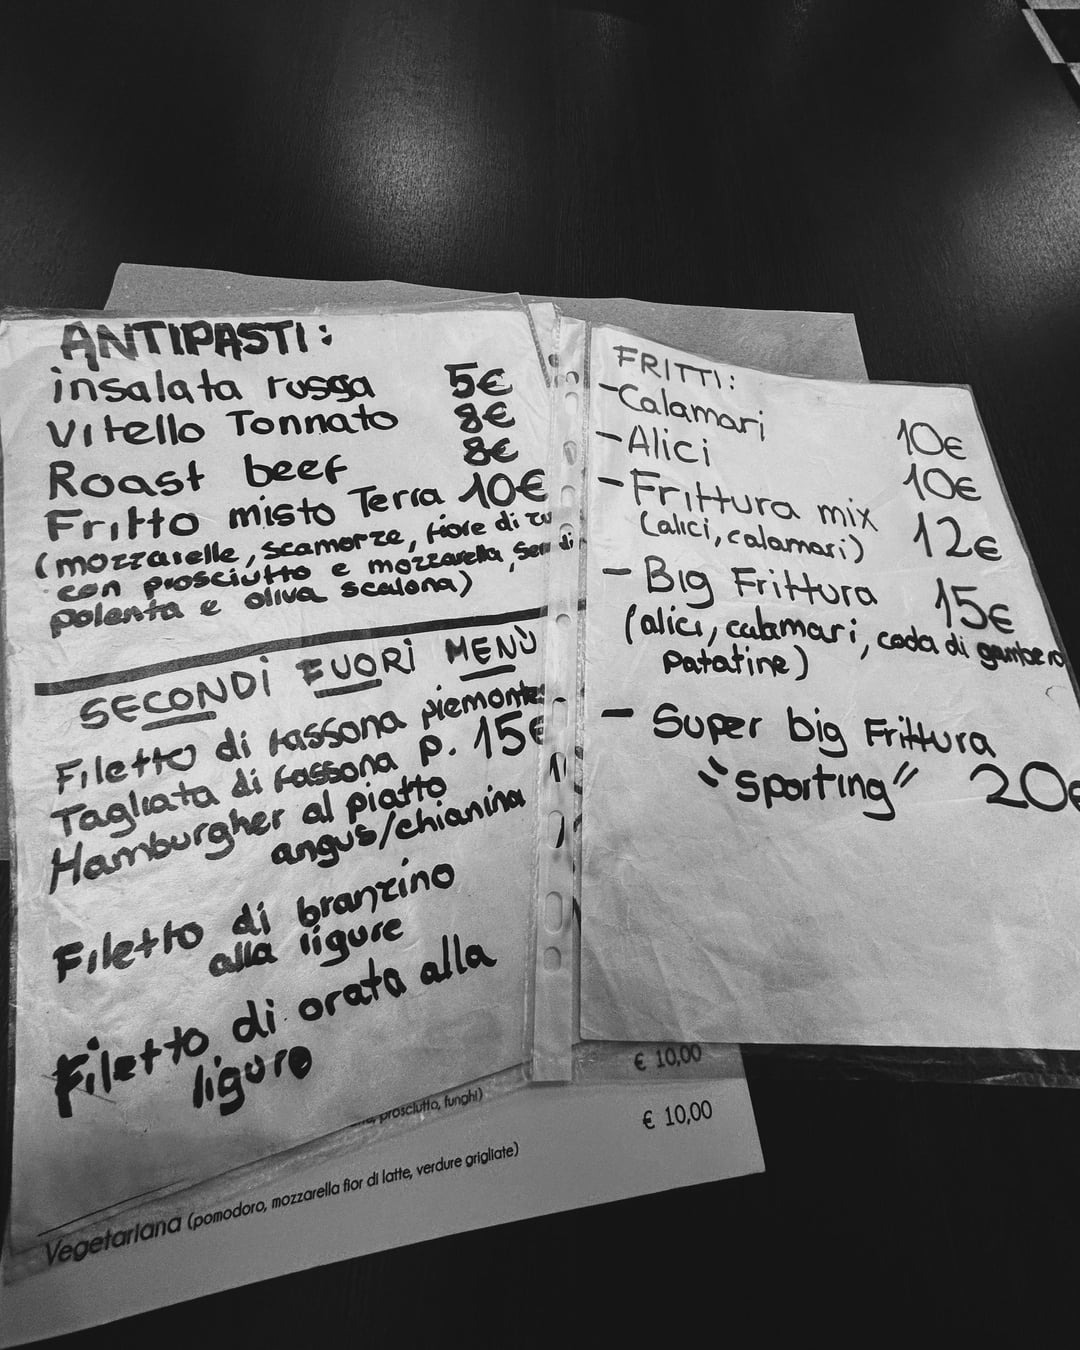 ANTIPASTI:
insalata russa 5€
Vitello Tonnato 8€
Roast beef 8€
Fritto misto Terra 10€
(mozzarelle, scamorze, fiore di zu
con prosciutto e mozzarella, sem di
polenta e oliva scalona)
SECONDI FUORI MENÙ
Filetto di fassona piemonte
Tagliata di fassona p. 15€
Hamburgher al piatto
angus/chianina
Filetto di branzino
alla ligure
Filetto di orata alla
ligure
FRITTI:
-Calamari 10€
-Alici 10€
-Frittura mix 12€
(alici, calamari)
- Big Frittura 15€
(alici, calamari, coda di gambero
patatine)
- Super big Frittura
"sporting" 20€
€ 10,00
prosciutto, funghi)
€ 10,00
Vegetariana (pomodoro, mozzarella fior di latte, verdure grigliate)